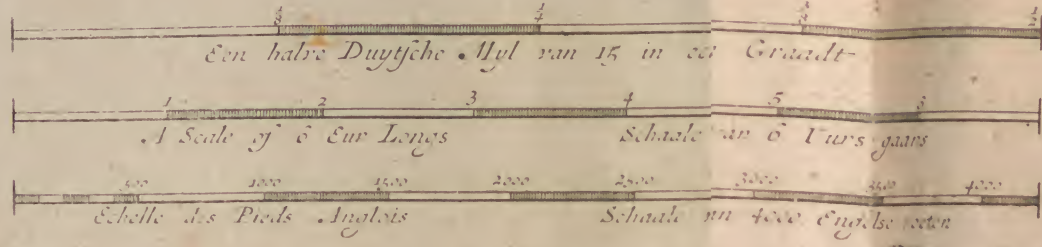 Een halve Duytsche Myl van 15 in een Graadt
1 2 3 4 5 6
A Scale of 6 Eur Longs Schaale van 6 Vurs gaars
500 1000 1500 2000 2500 3000 3500 4000
Echelle des Pieds Anglois Schaale van 4000 Engelse voeten